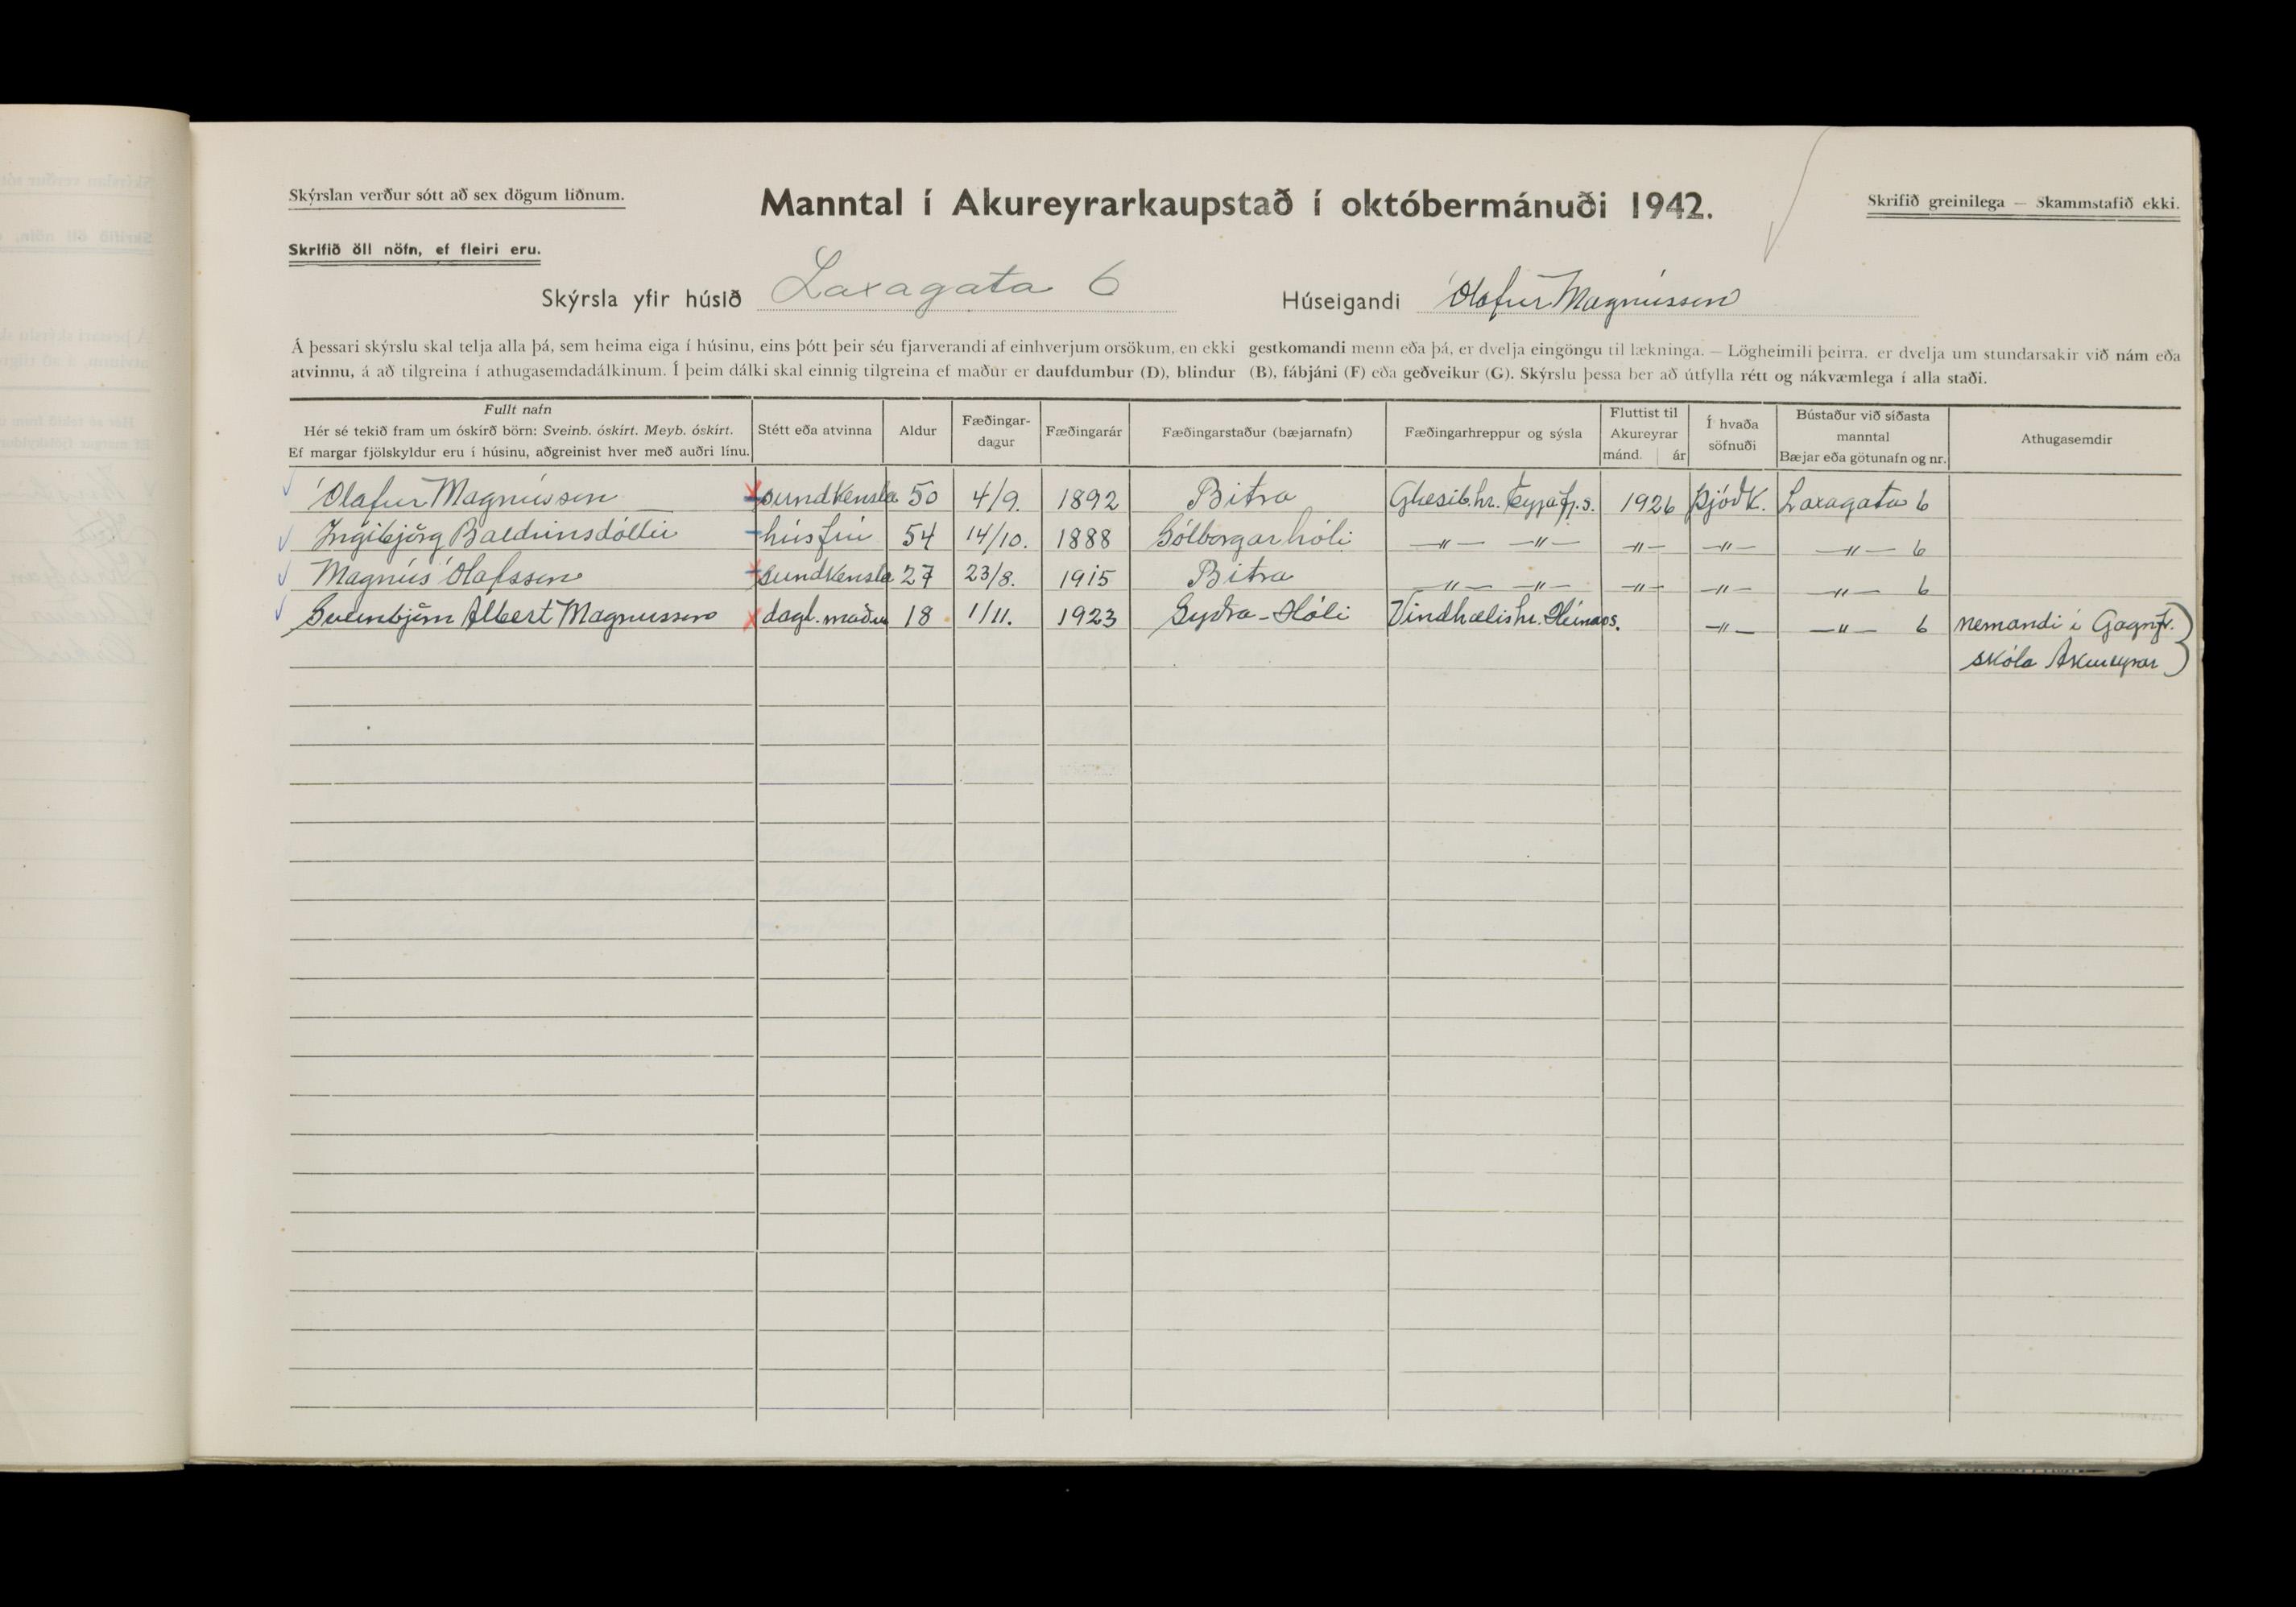 Skýrslan verður sótt að sex dögum liðnum.
Manntal í Akureyrarkaupstað í októbermánuði 1942.
Skrifið greinilega — Skammstafið ekki.
Skrifið öll nöfn, ef fleiri eru.
Skýrsla yfir húsið Laxagata 6 Húseigandi Ólafur Magnússon
Á þessari skýrslu skal telja alla þá, sem heima eiga í húsinu, eins þótt þeir séu fjarverandi af einhverjum orsökum, en ekki gestkomandi menn eða þá, er dvelja eingöngu til lækninga. — Lögheimili þeirra, er dvelja um stundarsakir við nám eða
atvinnu, á að tilgreina í athugasemdadálkinum. Í þeim dálki skal einnig tilgreina ef maður er daufdumbur (D), blindur (B), fábjáni (F) eða geðveikur (G). Skýrslu þessa ber að útfylla rétt og nákvæmlega í alla staði.
Fullt nafn
Hér sé tekið fram um óskírð börn: Sveinb. óskírt. Meyb. óskírt.
Ef margar fjölskyldur eru í húsinu, aðgreinist hver með auðri línu.
Stétt eða atvinna
Aldur
Fæðingar-
dagur
Fæðingarár
Fæðingarstaður (bæjarnafn)
Fæðingarhreppur og sýsla
Fluttist til
Akureyrar
mánd. ár
Í hvaða
söfnuði
Bústaður við síðasta
manntal
Bæjar eða götunafn og nr.
Athugasemdir
Ólafur Magnússon sundkensla 50 4/9. 1892 Bitra Glæsib.hr. Eyjafj.s. 1926 Þjóðk. Laxagata 6
Ingibjörg Baldvinsdóttir húsfrú 54 14/10. 1888 Sólborgarhóli —〃— —〃— —〃— —〃— —〃— 6
Magnús Ólafsson sundkensla 27 23/8. 1915 Bitra —〃— —〃— —〃— —〃— —〃— 6
Sveinbjörn Albert Magnusson dagl. maður 18 1/11. 1923 Syðra-Hóli Vindhælishr. Húnav.s. —〃— —〃— 6 nemandi í Gagnfr.
skóla Akureyrar